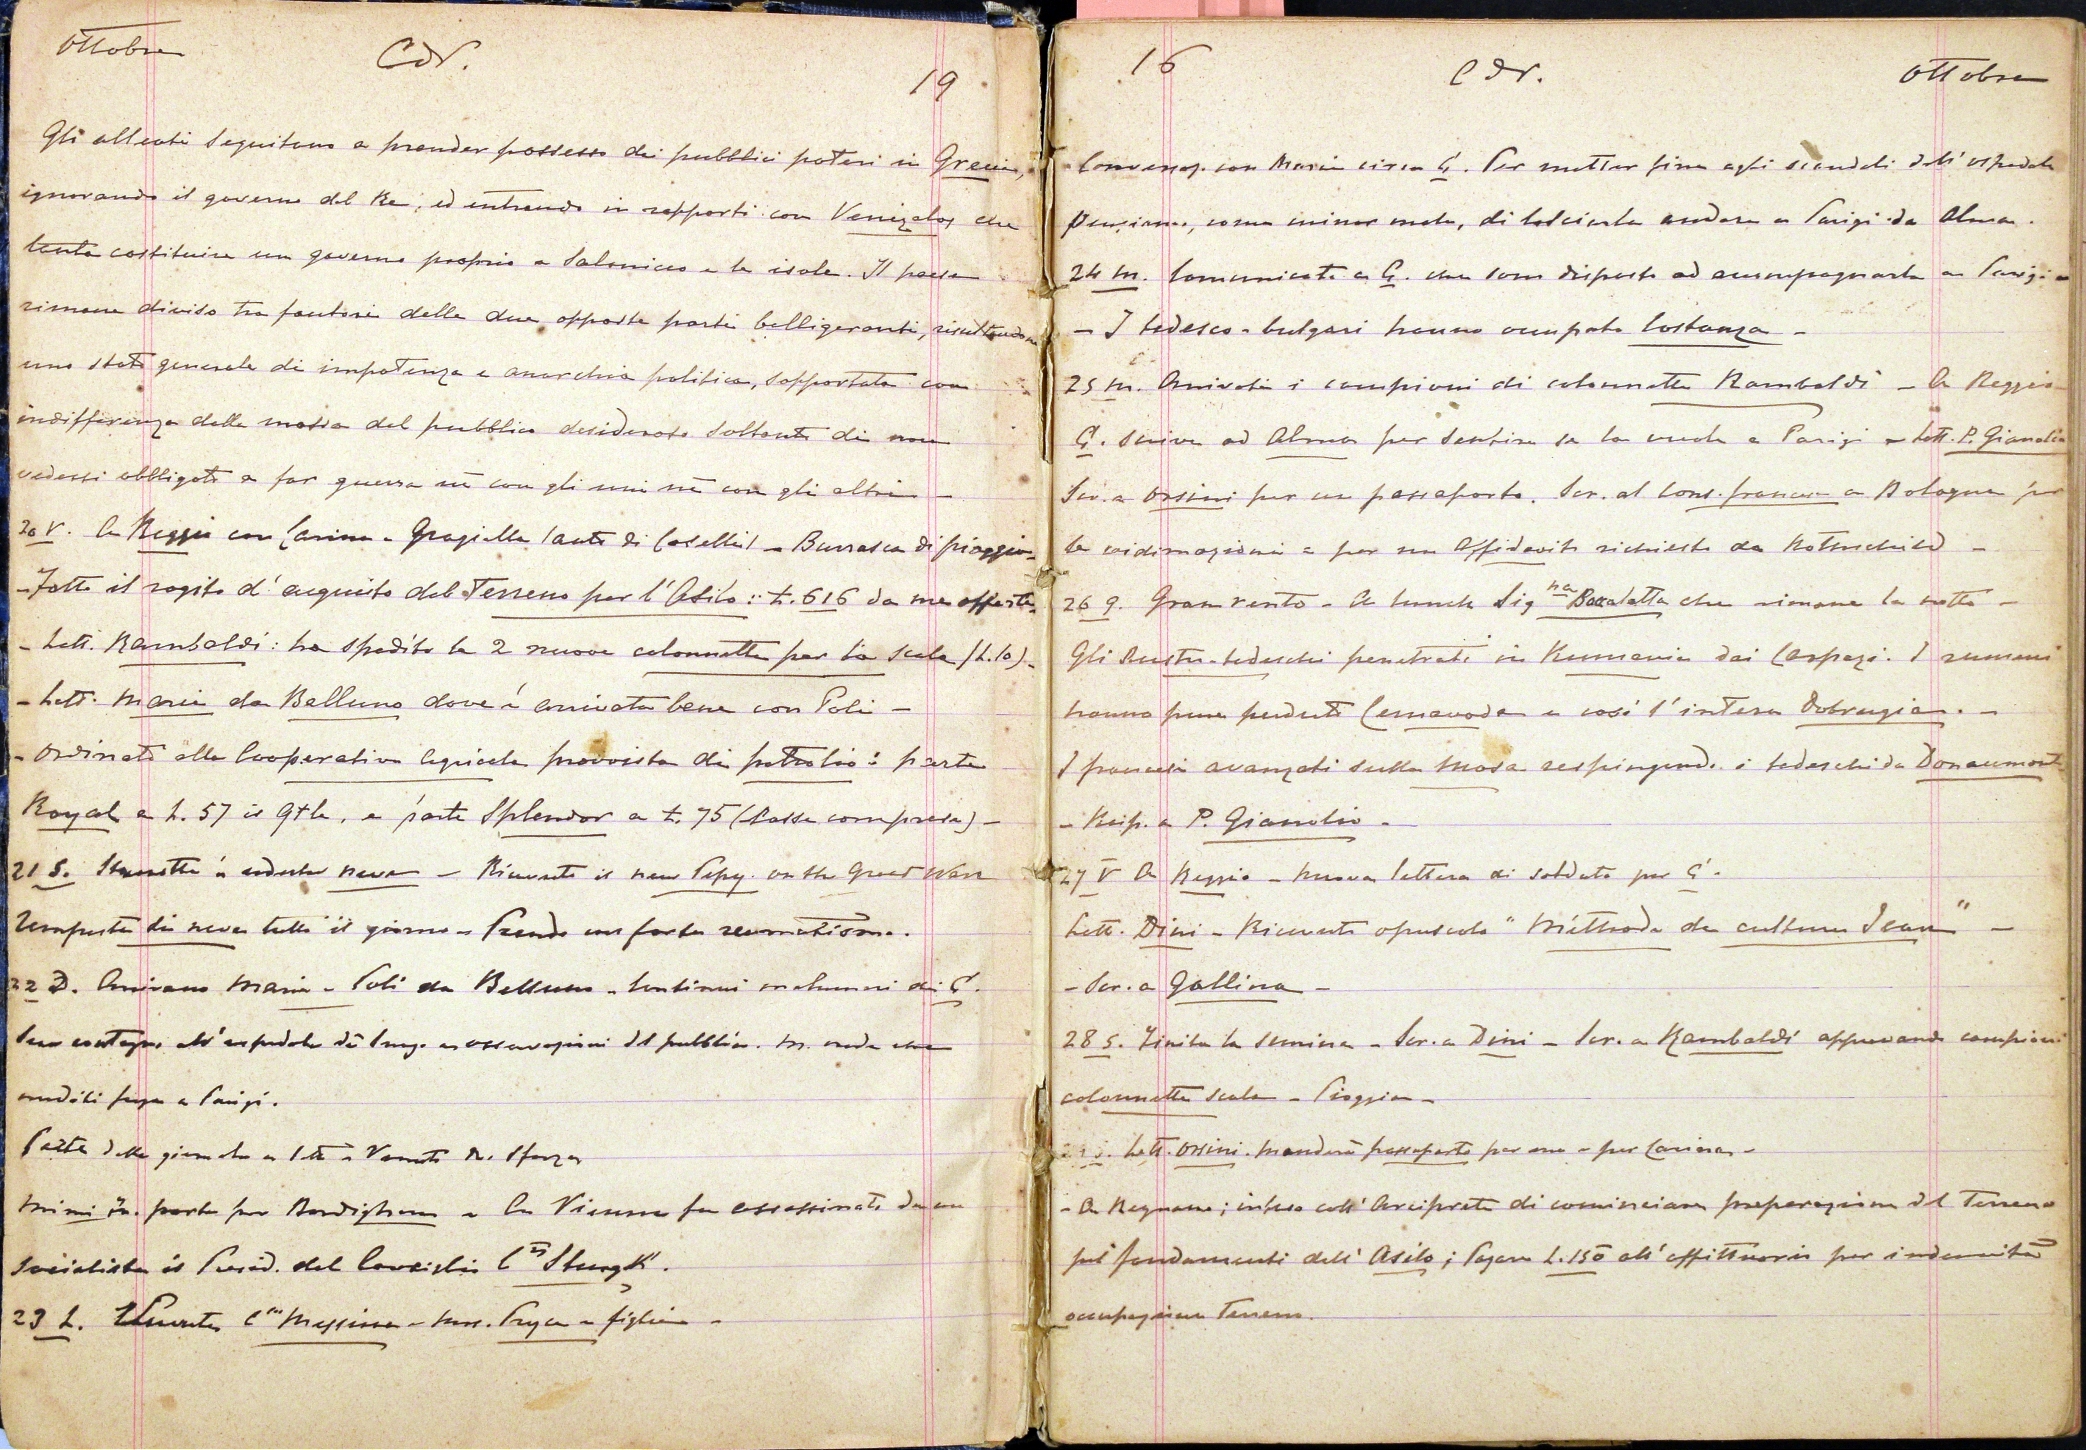 Ottobre
CdV.
19
Gli alleati seguitano a prender possesso dei pubblici poteri in Grecia,
ignorando il governo del Re, ed entrando in rapporti con Venizelos che
tenta costituire un governo proprio a Salonicco e le isole. Il paese
rimane diviso tra fautori delle due opposte parti belligeranti, risultandone
uno stato generale di impotenza e anarchia politica, sopportata con
indifferenza dalla massa del pubblico desideroso soltanto di non
vedersi obbligato a far guerra nè con gli uni nè con gli altri –
20 V. A Reggio con Carina e Graziella (auto di Caselli) – Burrasca di pioggia –
– Fatto il rogito d'acquisto del Terreno per l'Asilo: L. 616 da me offerte.
– Lett. Rambaldi: ha spedito le 2 nuove colonnette per la scala (L. 10) –
– Lett. Maria da Belluno dove è arrivata bene con Poli –
– Ordinato alla Cooperativa Agricola provvista di petrolio: parte
Royal a L. 57 il Qtle, e parte Splendor a L. 75 (tassa compresa) –
21 S. Stanotte è caduta neve – Ricevuto il new on the Great War
Tempesta di neve tutto il giorno – Prendo un forte reumatismo.
22 D. Arrivano Maria e Poli da Belluno – Continui malumori di G.
Suo contegno all'ospedale dà luogo a osservazioni del pubblico. M. crede che
mediti fuga a Parigi.
Parte della giornata a letto – Venuto M. Sforza
Mimì parte per Bordighera – A Vienna fu assassinato da un
socialista il Presid. del Consiglio C.te Sturgk.
23 L. C.ssa Messina – figlia –
16
CdV.
Ottobre
Conversaz. con Maria circa G. Per metter fine agli scandali dell'ospedale
pensiamo, come minor male, di lasciarla andare a Parigi da Alma.
24 M. Comunicato a G. che sono disposto ad accompagnarla a Parigi –
– I tedesco-bulgari hanno occupato Costanza –
25 M. Arrivati i campioni di colonnette Rambaldi – A Reggio
G. scrive ad Alma per sentire se la vuole a Parigi – Lett. P. Gianolio
Scr. a Orsini per un passaporto. Scr. al Cons. francese a Bologna per
la vidimazione e per un Affidavit richiesto da Rothschild –
26 G. Gran vento – A lunch Sig.na Bacalatta che rimane la notte –
Gli Austro-tedeschi penetrati in Rumania dai Carpazi. I rumeni
hanno pure perduto Cernavoda e così l'intera Dobrugia. –
I francesi avanzati sulla Mosa respingendo i tedeschi da Douaumont –
– Risp. a P. Gianolio –
27 V A Reggio – Nuova lettera di soldato per G.
Lett. Dini – Ricevuto opuscolo "Méthode de culture Jean" –
– Scr. a Gallina –
28 S. Finita la semina – Scr. a Dini – Scr. a Rambaldi approvando campioni
colonnette scala – Pioggia –
Lett. Orsini. Manderà passaporto per me e per Carina –
– A Regnano; inteso coll'Arciprete di cominciare preparazione del Terreno
pei fondamenti dell'Asilo; pagare L. 150 all'affittuario per indennità
occupazione Terreno.